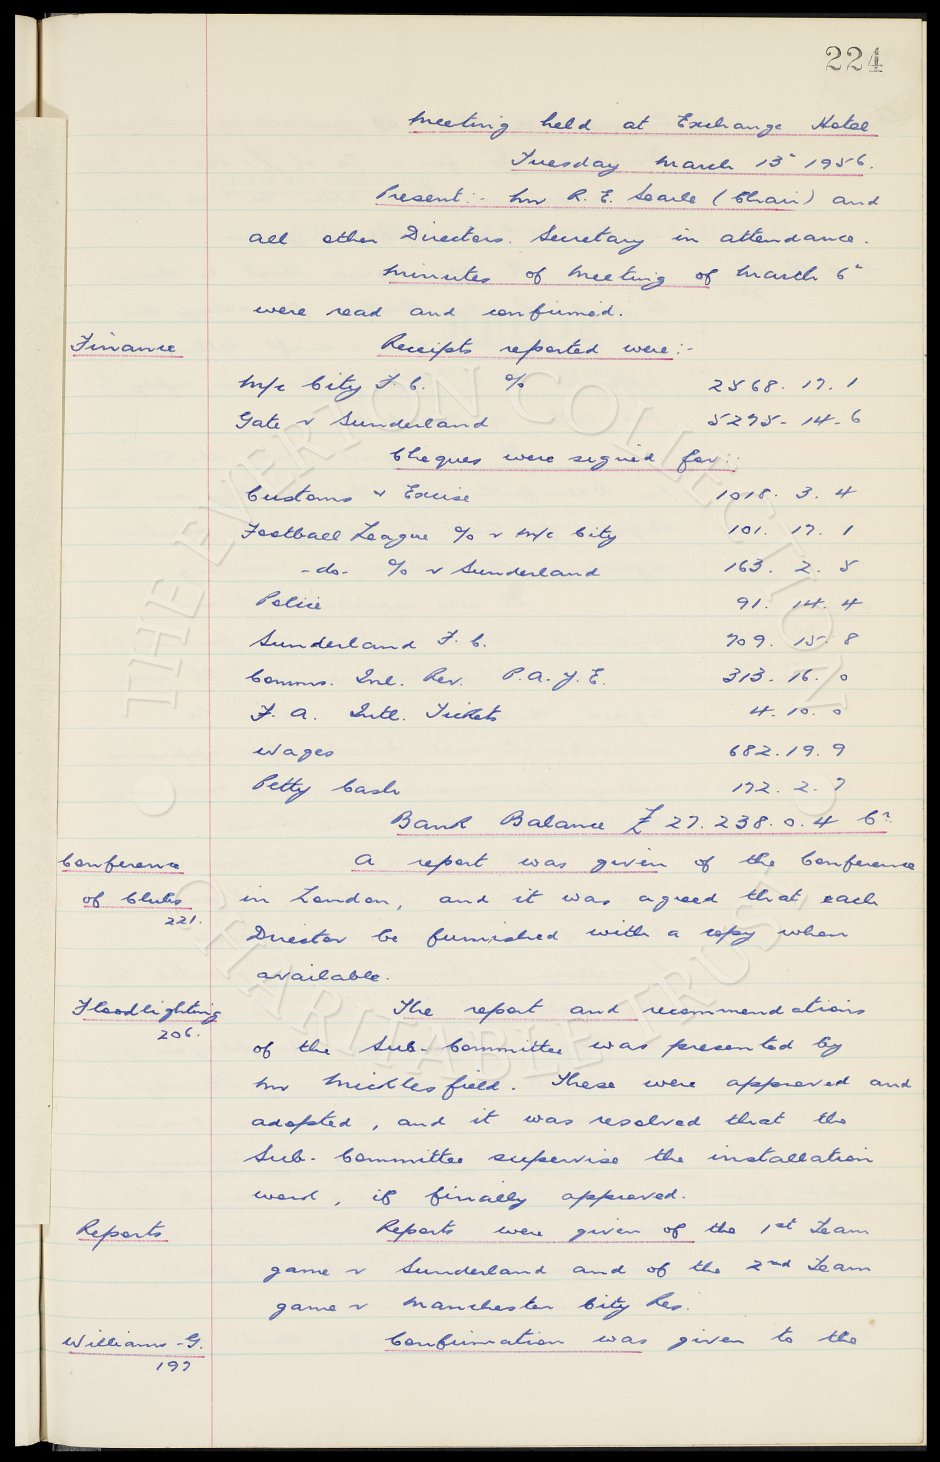 224
Meeting held at Exchange Hotel
Tuesday March 13" 1956.
Present:- Mr R. E. Searle (Chair) and
all other Directors. Secretary in attendance.
Minutes of Meeting of March 6"
were read and confirmed.
Finance
Receipts reported were:-
M/c City F. C. % 2568. 17. 1
Gate v Sunderland 5275 - 14 - 6
Cheques were signed for:-
Customs & Excise 1018. 3. 4
Football League % v M/c City 101. 17. 1
-do- % v Sunderland 163. 2. 5
Police 91. 14. 4
Sunderland F. C. 709. 15. 8
Comms. Inl. Rev. P.A.Y.E. 313. 16. 0
F. A. Intl. Tickets 4. 10. 0
Wages 682. 19. 9
Petty Cash 172. 2. 7
Bank Balance £27.238. 0. 4 Cr.
Conference
of Clubs
221.
A report was given of the Conference
in London, and it was agreed that each
Director be furnished with a copy when
available.
Floodlighting
206.
The report and recommendations
of the Sub-Committee was presented by
Mr Micklesfield. These were approved and
adopted, and it was resolved that the
Sub-Committee supervise the installation
word, if finally approved.
Reports
Reports were given of the 1st Team
game v Sunderland and of the 2nd Team
game v Manchester City Res.
Williams - G.
197
Confirmation was given to the
THE EVERTON COLLECTION
CHARITABLE TRUST